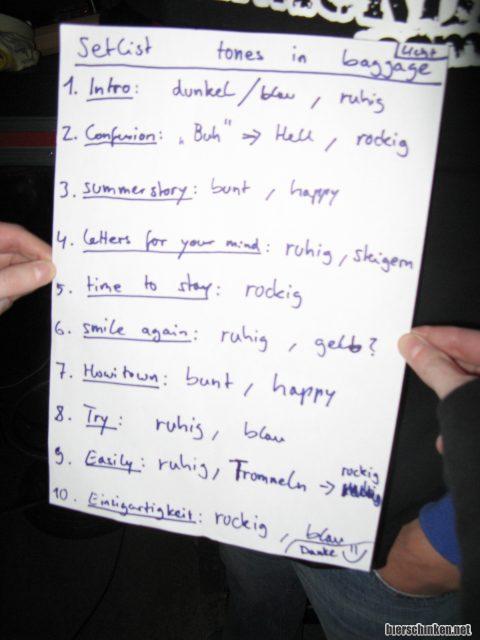 Setlist tones in baggage
Licht
1. Intro: dunkel/blau, ruhig
2. Confusion: „Buh" => Hell, rockig
3. summerstory: bunt, happy
4. letters for your mind: ruhig, steigern
5. time to stay: rockig
6. smile again: ruhig, gelb?
7. Howitown: bunt, happy
8. Try: ruhig, blau
9. Easily: ruhig, Trommeln -> rockig
10. Einzigartigkeit: rockig, blau
Danke
bierschinken.net